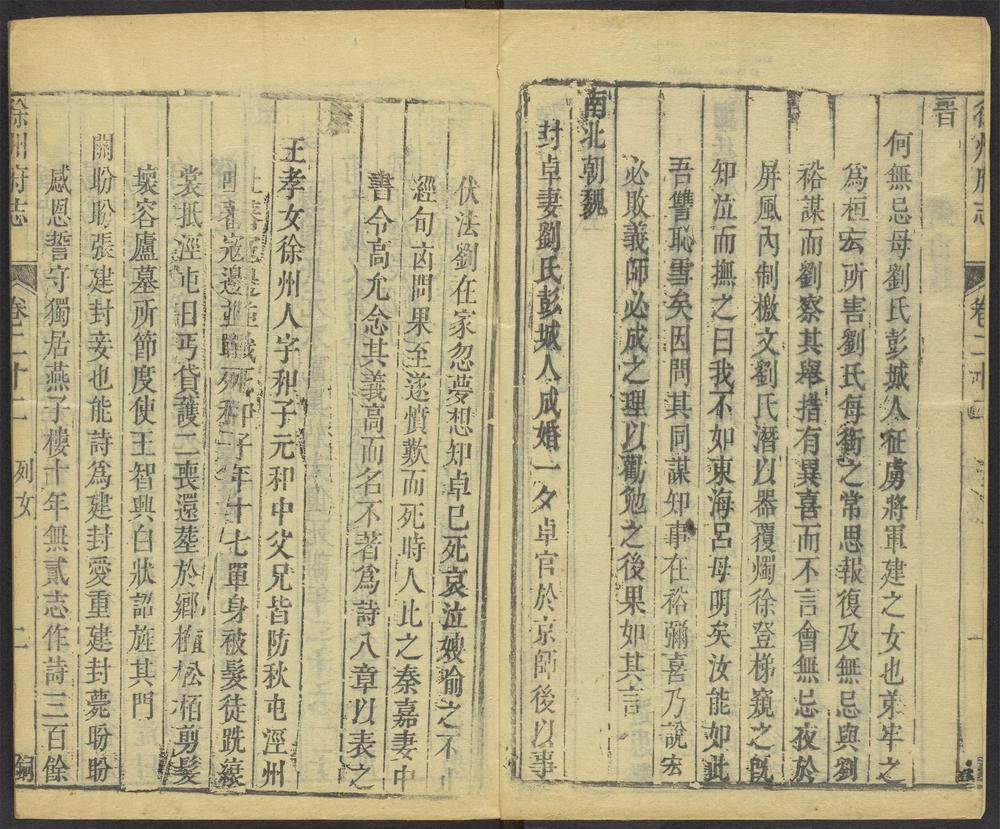 徐州府志 卷二十二 一
晉
何無忌母劉氏彭城人征虜將軍建之女也弟牢之
為桓宏所害劉氏每銜之常思報復及無忌與劉
裕謀而劉察其舉措有異喜而不言會無忌夜於
屏風內制檄文劉氏潛以器覆燭徐登梯窺之旣
知泣而撫之曰我不如東海呂母明矣汝能如此
吾讐恥雪矣因問其同謀知事在裕彌喜乃說宏
必敗義師必成之理以勸勉之後果如其言
南北朝魏
封卓妻劉氏彭城人成婚一夕卓官於京師後以事
伏法劉在家忽夢想知卓已死哀泣嫂喻之不
經旬凶問果至遂憤歎而死時人比之秦嘉妻中
書令高允念其義高而名不著為詩八章以表之
王孝女徐州人字和子元和中父兄皆防秋屯涇州
吐蕃寇邊並戰死和子年十七單身被髮徒跣縗
裳抵涇屯日丐貸護二喪還塟於鄉植松栢剪髮
壞容廬墓所節度使王智興白狀詔旌其門
關盼盼張建封妾也能詩為建封愛重建封薨盼盼
感恩誓守獨居燕子樓十年無貳志作詩三百餘
徐州府志 卷二十二 列女 二